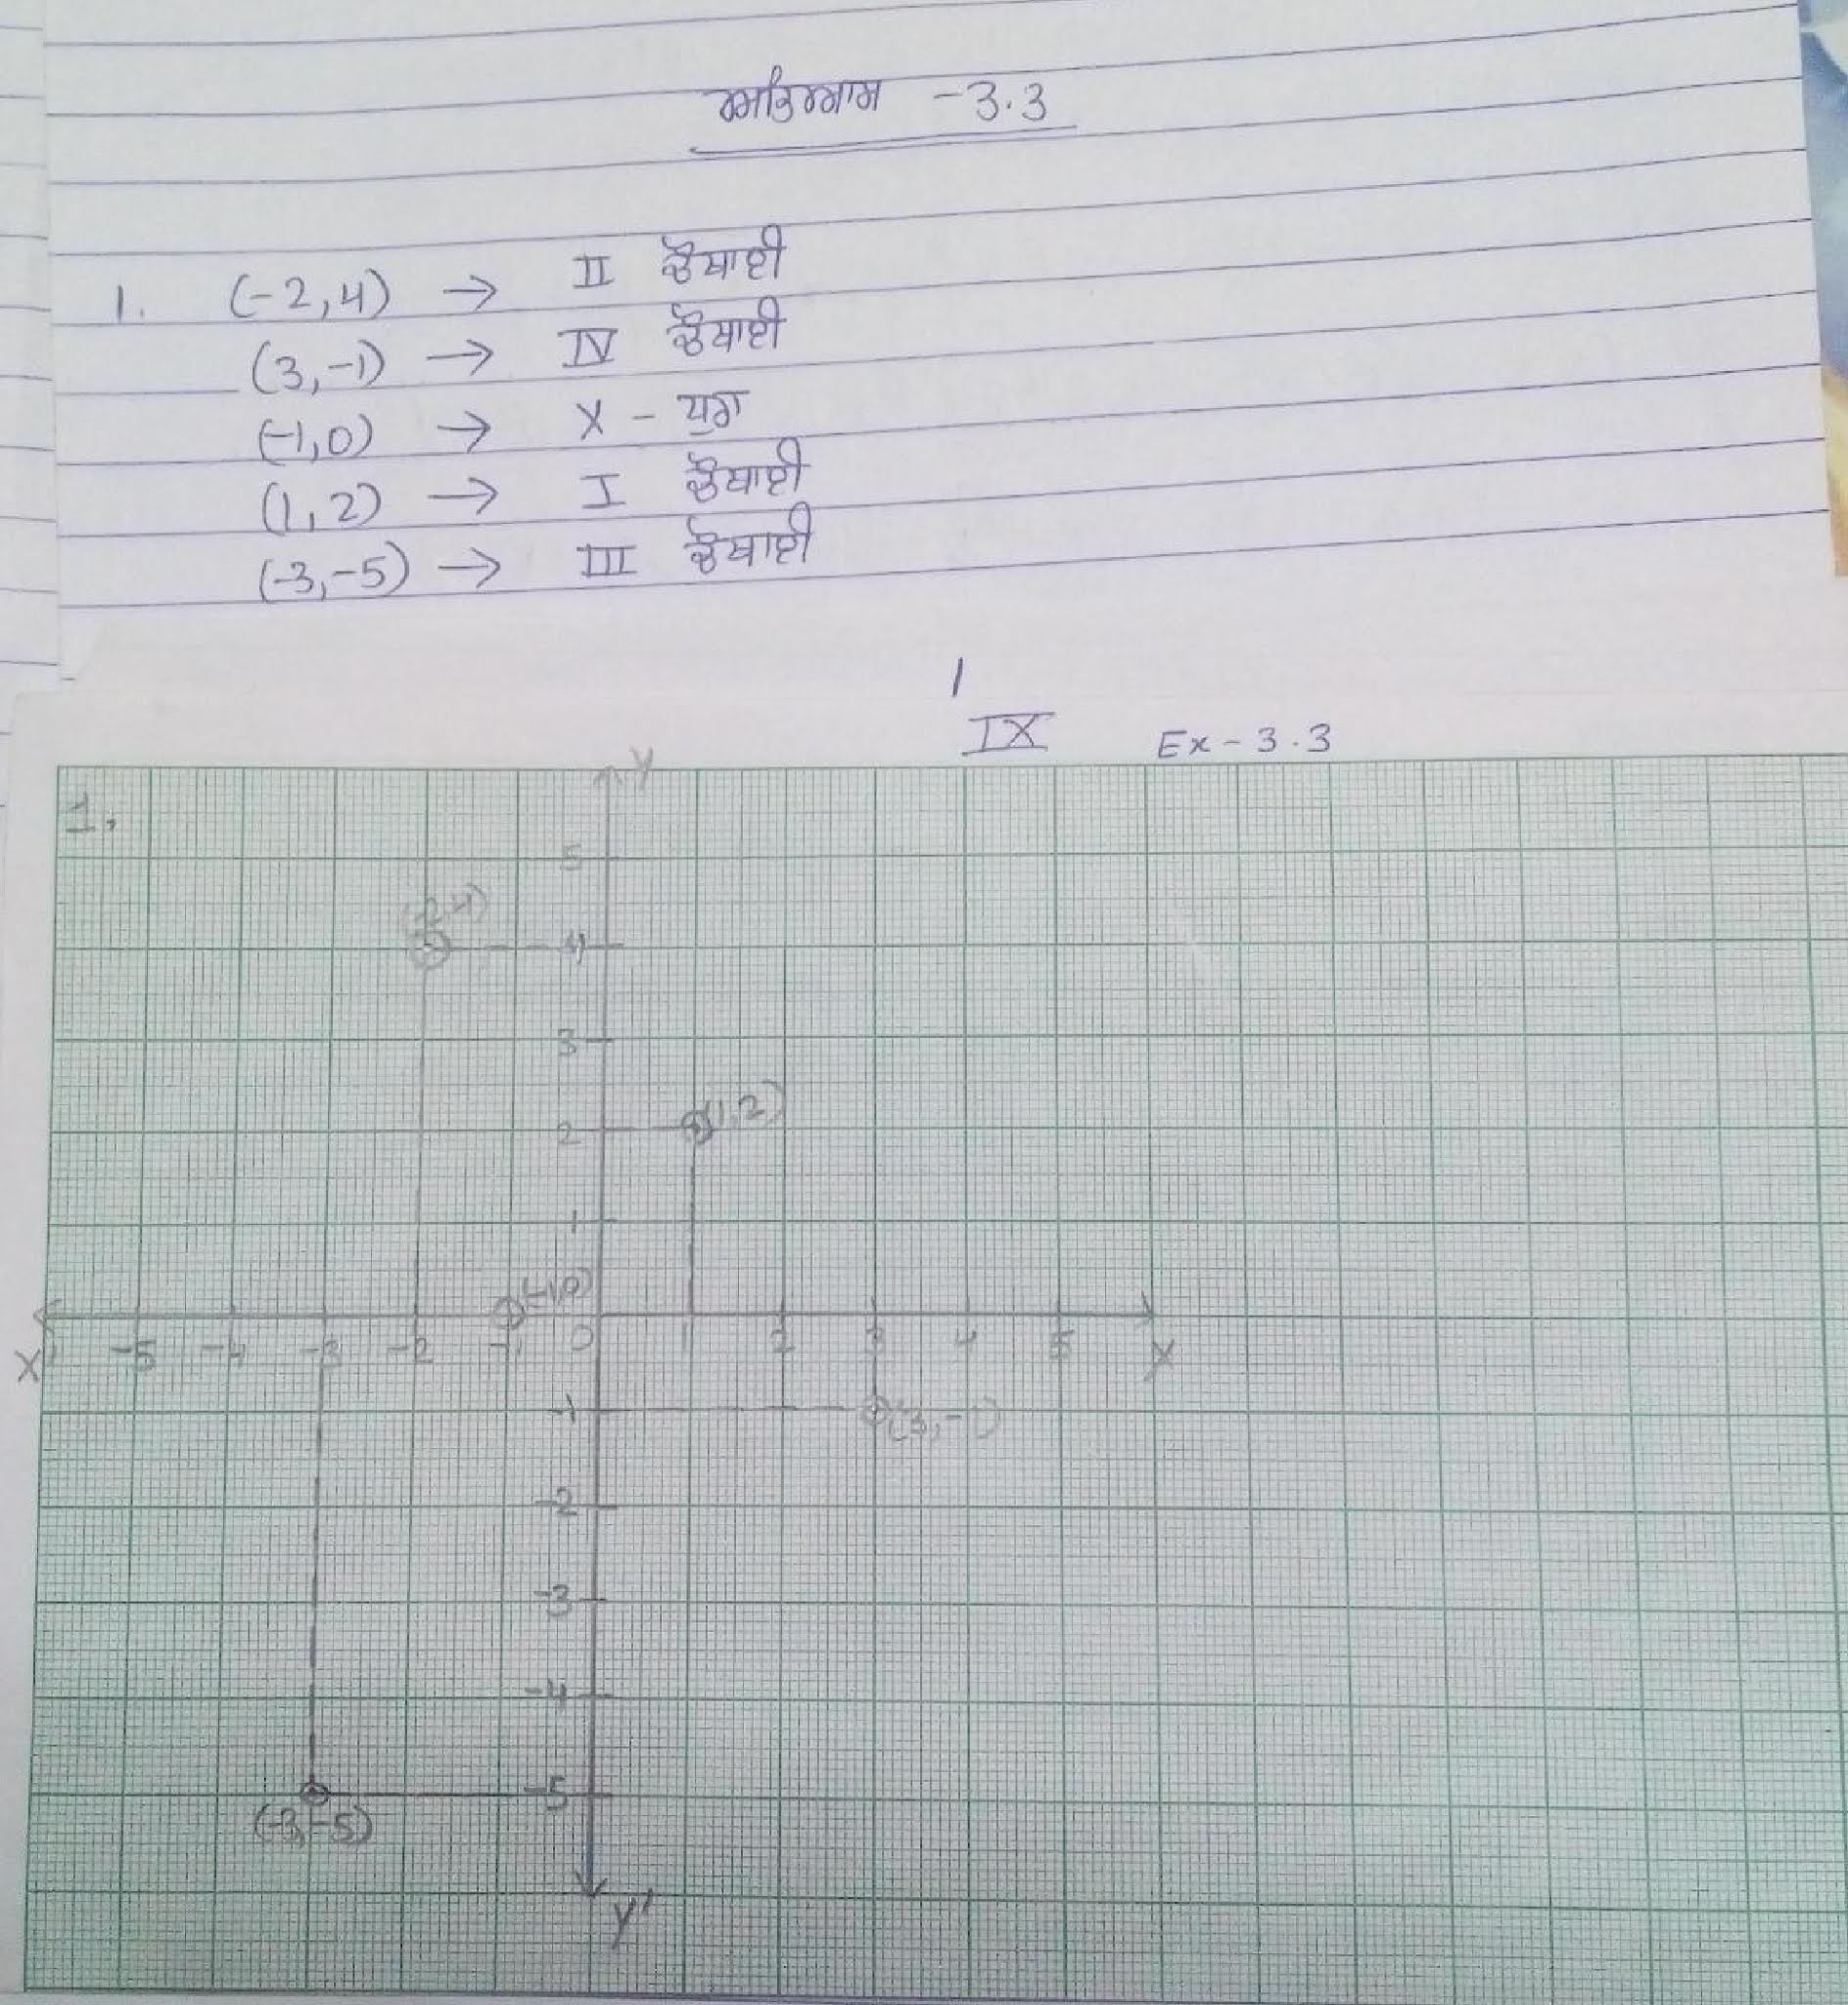 ਅਭਿਆਸ -3.3
1. (-2,4) → II ਚੌਥਾਈ
(3,-1) → IV ਚੌਥਾਈ
(-1,0) → X - ਧੁਰਾ
(1,2) → I ਚੌਥਾਈ
(-3,-5) → III ਚੌਥਾਈ
IX Ex-3.3
1.
Y
5
(-2,4)
4
3
2 (1,2)
1
(-1,0)
X' -5 -4 -3 -2 -1 0 1 2 3 4 5 X
-1 (3,-1)
-2
-3
-4
-5
(-3,-5)
Y'